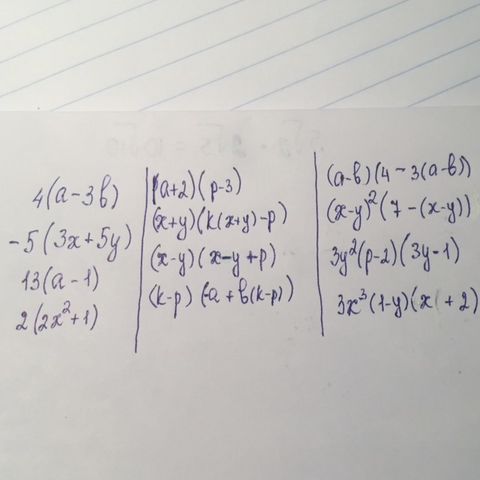 4(a-3b)
-5(3x+5y)
13(a-1)
2(2x²+1)
(a+2)(p-3)
(x+y)(k(x+y)-p)
(x-y)(x-y+p)
(k-p)(-a+b(k-p))
(a-b)(4-3(a-b))
(x-y)²(7-(x-y))
3y²(p-2)(3y-1)
3x³(1-y)(x+2)